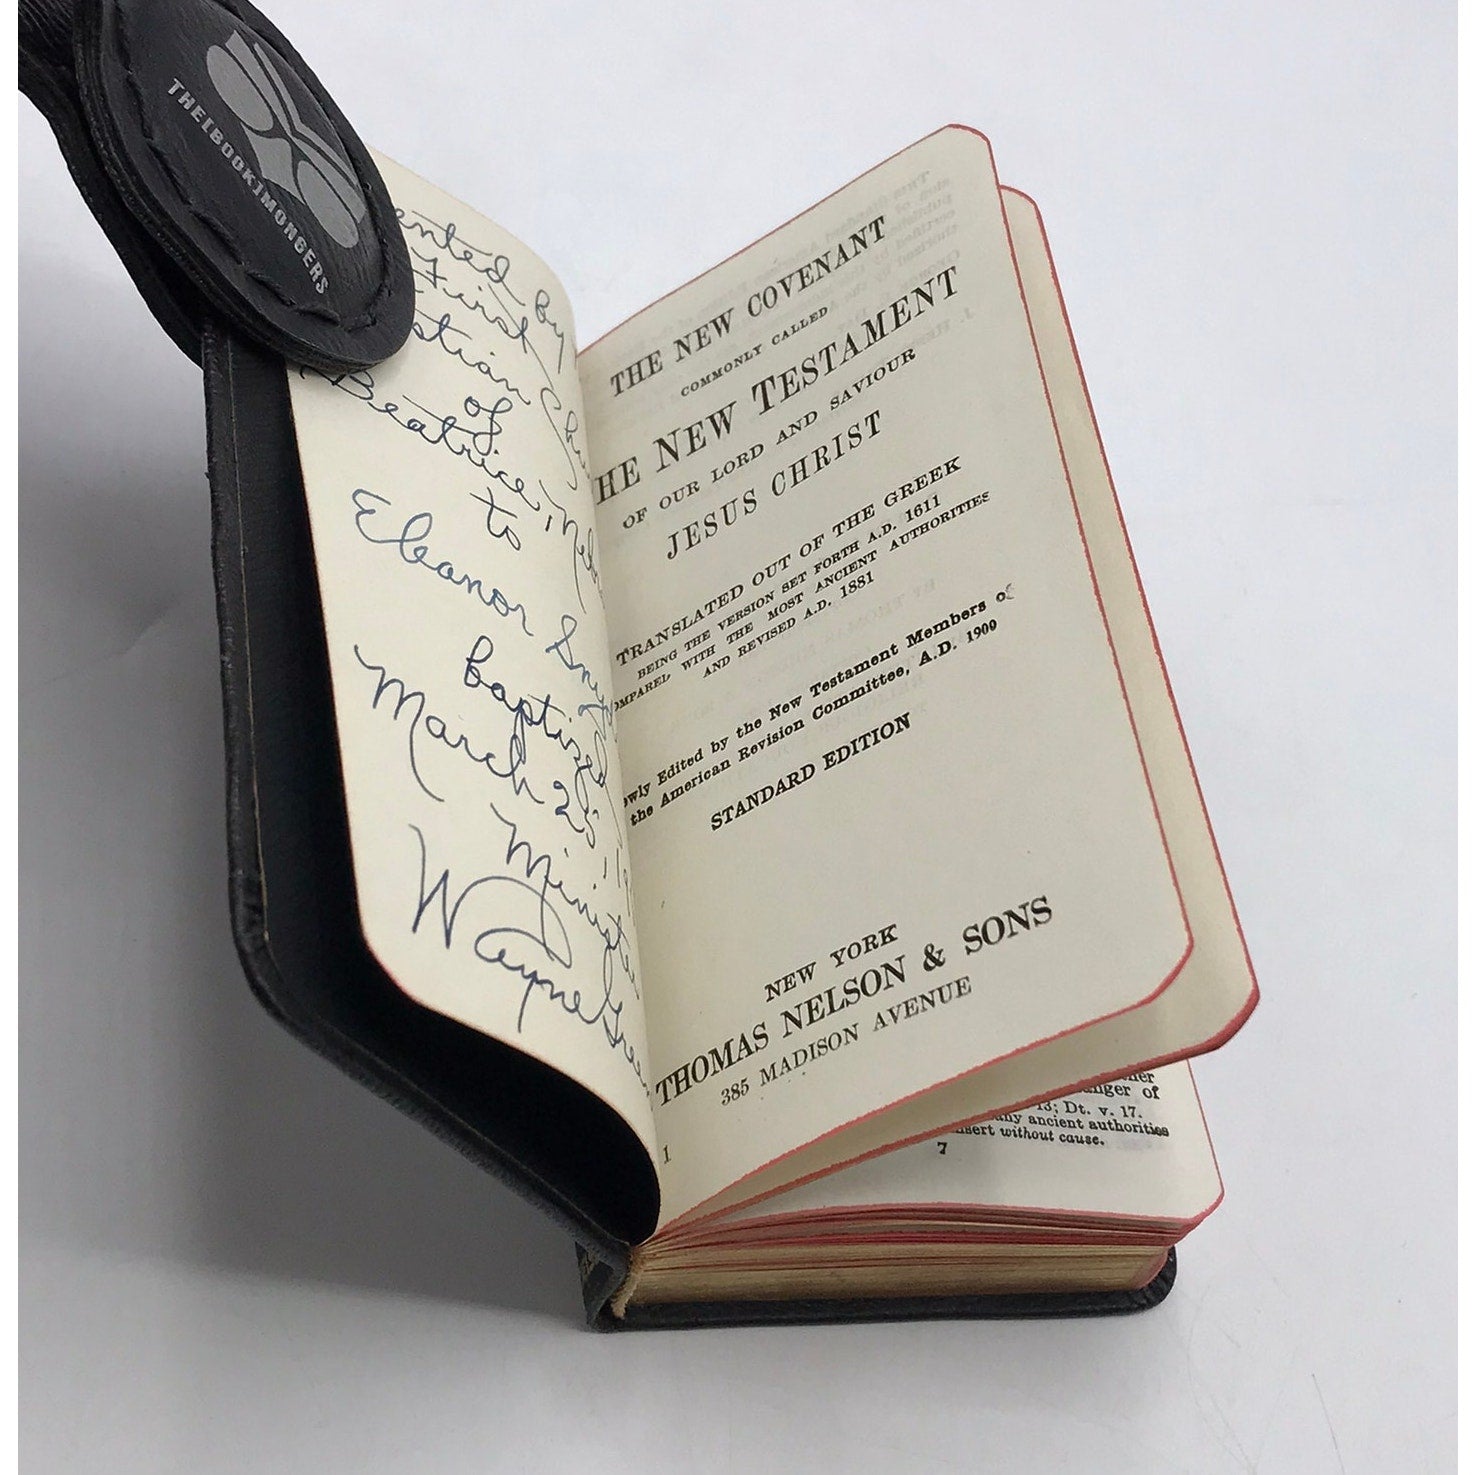 THE[BOOK]MONGERS
ented by
First
stian Chu
of
Beatrice, Neb
to
Eleanor Smy
baptized
March 25, 
Minister
Wayne Gree
THE NEW COVENANT
COMMONLY CALLED
HE NEW TESTAMENT
OF OUR LORD AND SAVIOUR
JESUS CHRIST
TRANSLATED OUT OF THE GREEK
BEING THE VERSION SET FORTH A.D. 1611
OMPARED WITH THE MOST ANCIENT AUTHORITIES
AND REVISED A.D. 1881
ewly Edited by the New Testament Members of
the American Revision Committee, A.D. 1900
STANDARD EDITION
NEW YORK
THOMAS NELSON & SONS
385 MADISON AVENUE
1
nger of
13; Dt. v. 17.
any ancient authorities
nsert without cause.
7